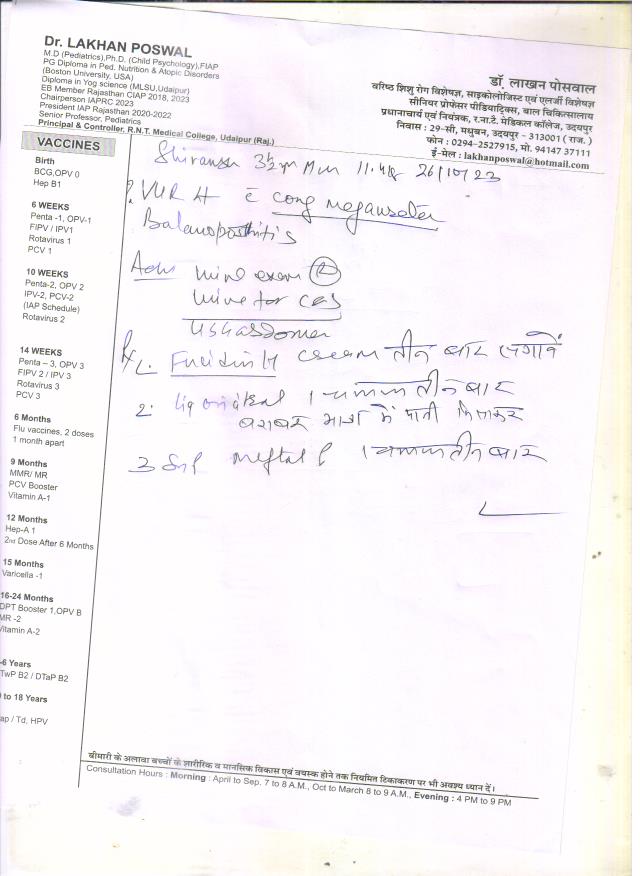 Dr. LAKHAN POSWAL
M.D (Pediatrics),Ph.D. (Child Psychology),FIAP
PG Diploma in Ped. Nutrition & Atopic Disorders
(Boston University, USA)
Diploma in Yog science (MLSU,Udaipur)
EB Member Rajasthan CIAP 2018, 2023
Chairperson IAPRC 2023
President IAP Rajasthan 2020-2022
Senior Professor, Pediatrics
Principal & Controller, R.N.T. Medical College, Udaipur (Raj.)
डॉ. लाखन पोसवाल
वरिष्ठ शिशु रोग विशेषज्ञ, साइकोलोजिस्ट एवं एलर्जी विशेषज्ञ
सीनियर प्रोफेसर पीडियाट्रिक्स, बाल चिकित्सालय
प्रधानाचार्य एवं नियंत्रक, र.ना.टै. मेडिकल कॉलेज, उदयपुर
निवास : 29-सी, मधुबन, उदयपुर - 313001 ( राज. )
फोन : 0294-2527915, मो. 94147 37111
ई-मेल : lakhanposwal@hotmail.com
VACCINES
Birth
BCG,OPV 0
Hep B1
6 WEEKS
Penta -1, OPV-1
FIPV / IPV1
Rotavirus 1
PCV 1
10 WEEKS
Penta-2, OPV 2
IPV-2, PCV-2
(IAP Schedule)
Rotavirus 2
14 WEEKS
Penta – 3, OPV 3
FIPV 2 / IPV 3
Rotavirus 3
PCV 3
6 Months
Flu vaccines, 2 doses
1 month apart
9 Months
MMR/ MR
PCV Booster
Vitamin A-1
12 Months
Hep-A 1
2nd Dose After 6 Months
15 Months
Varicella -1
16-24 Months
DPT Booster 1,OPV B
MR -2
Vitamin A-2
-6 Years
TwP B2 / DTaP B2
to 18 Years
ap / Td, HPV
3½ 26/10/23
VUR cong megaureter
Balanoposthitis
Adv urine exam (R)
urine for C&S
USG abdomen
Rx 1. Fucidin H cream तीन बार लगावें
2. तीन बार
बराबर भाग में पानी मिलाकर
3 Syp Meftal P तीन बार
बीमारी के अलावा बच्चों के शारीरिक व मानसिक विकास एवं वयस्क होने तक नियमित टिकाकरण पर भी अवश्य ध्यान दें।
Consultation Hours : Morning : April to Sep. 7 to 8 A.M., Oct to March 8 to 9 A.M., Evening : 4 PM to 9 PM